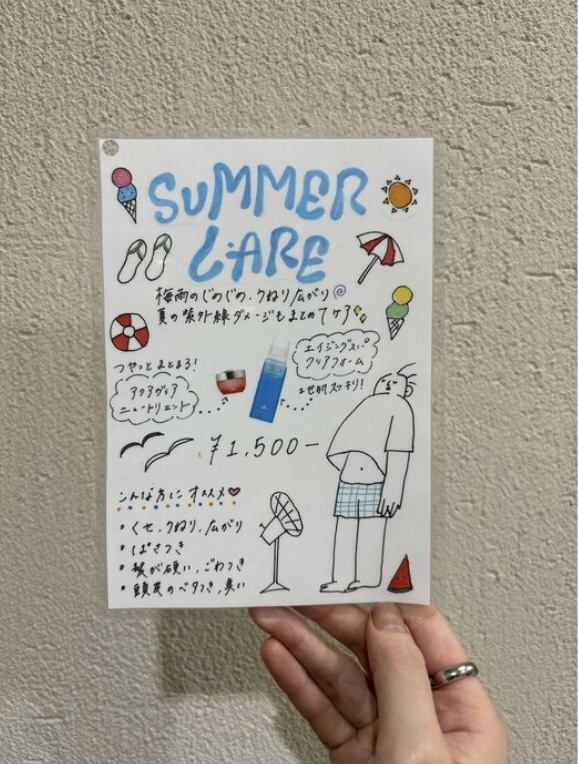 SUMMER
CARE
梅雨のじめじめ、うねり広がり
夏の紫外線ダメージもまとめてケア
つやっとまとまる!
アクアヴィア
ニュートリエント
エイジングスパ
クリアフォーム
地肌スッキリ!
¥1,500-
こんな方にオススメ♡
• くせ、うねり、広がり
• ぱさつき
• 髪が硬い、ごわつき
• 頭皮のベタつき、臭い